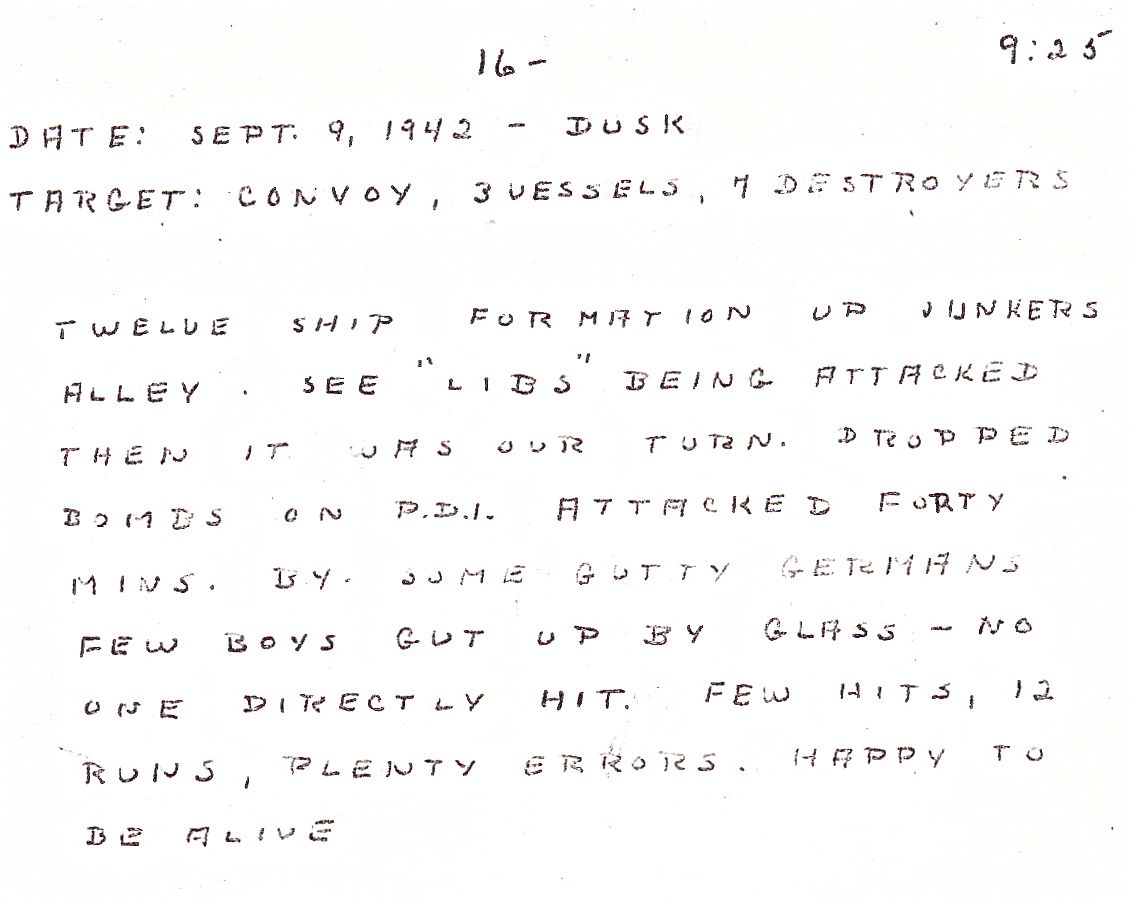 16-
9:25
DATE: SEPT. 9, 1942 - DUSK
TARGET: CONVOY, 3 VESSELS, 7 DESTROYERS
TWELVE SHIP FORMATION UP JUNKERS
ALLEY. SEE "LIBS" BEING ATTACKED
THEN IT WAS OUR TURN. DROPPED
BOMBS ON P.D.I. ATTACKED FORTY
MINS. BY. SOME GUTTY GERMANS
FEW BOYS GUT UP BY GLASS - NO
ONE DIRECTLY HIT. FEW HITS, 12
RUNS, PLENTY ERRORS. HAPPY TO
BE ALIVE